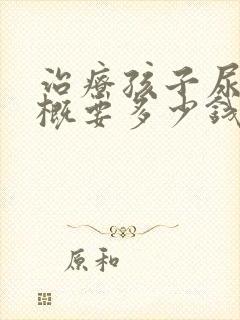 治疗孩子尿
概要多少钱
原和